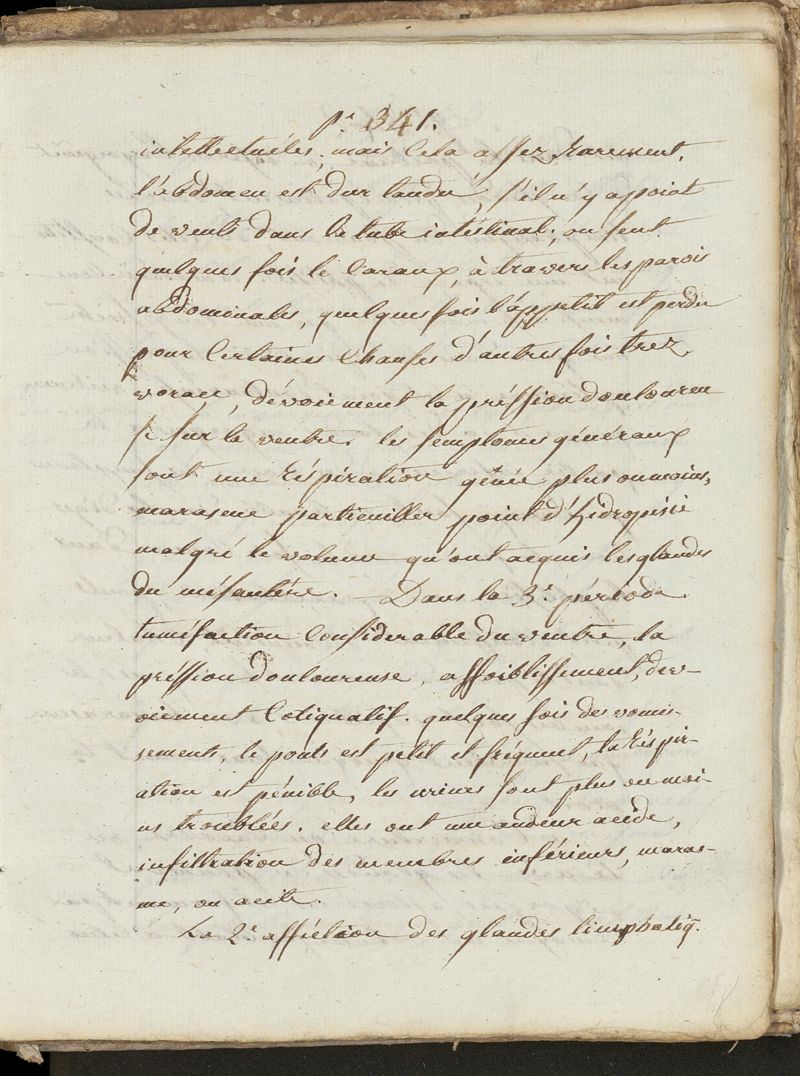 p.e 341.
intellectuéles, mais Cela assez Rarement.
l'abdomen est dur tandu, s'il n'y a point
de vents dans le tube intéstinal; on sent
quelques fois le Caraux, à travers les parois
abdominales, quelques fois l'appetit est perdu
pour Certaines Chauses d'autres fois trez
vorace, dévoiement la préssion douloureu
se sur le ventre. les semptomes généraux
sont une Réspiration génée plus ou moins,
marasme particuiller point d'hidropisie
malgré le volume qu'ont acquis les glandes
du mésantére. — Dans la 3.e période
tuméfaction Considerable du ventre, la
préssion douloureuse, affoiblissement, dev-
oiement Cotiquatif. quelques fois des vomis-
sements, le pouls est petit et fréquent, la Réspir-
ation est pénible, les urines sont plus ou moi-
ns troublées. elles ont une audeur acide,
infiltration des membres inférieurs, maras-
me, ou acite.
La 2.e affiétion des glandes limphatiq̃.